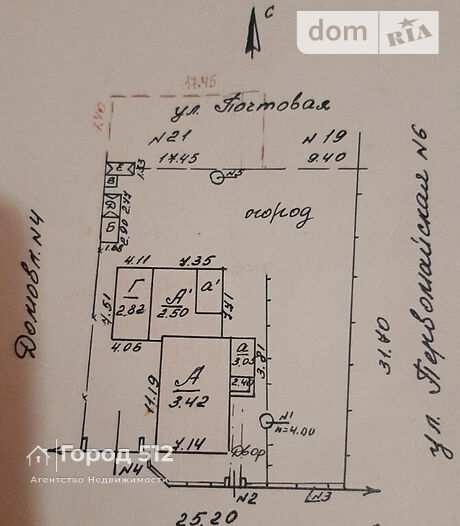 С
dom RIA
17.45
ул. Почтовая
N21
N19
17.45
9.40
Е
1.53
N5
В
Д
2.77
Б
2.90
1.66
огород
Домовл. N4
ул. Первомайская N6
4.11
7.35
Г
2.82
А'
2.50
а'
7.71
7.51
4.06
а
3.03
3.81
2.40
31.40
А
3.42
11.19
N1
п=4.00
7.14
Двор
Город 512
Агентство Недвижимости
N4
N2
N3
25.20